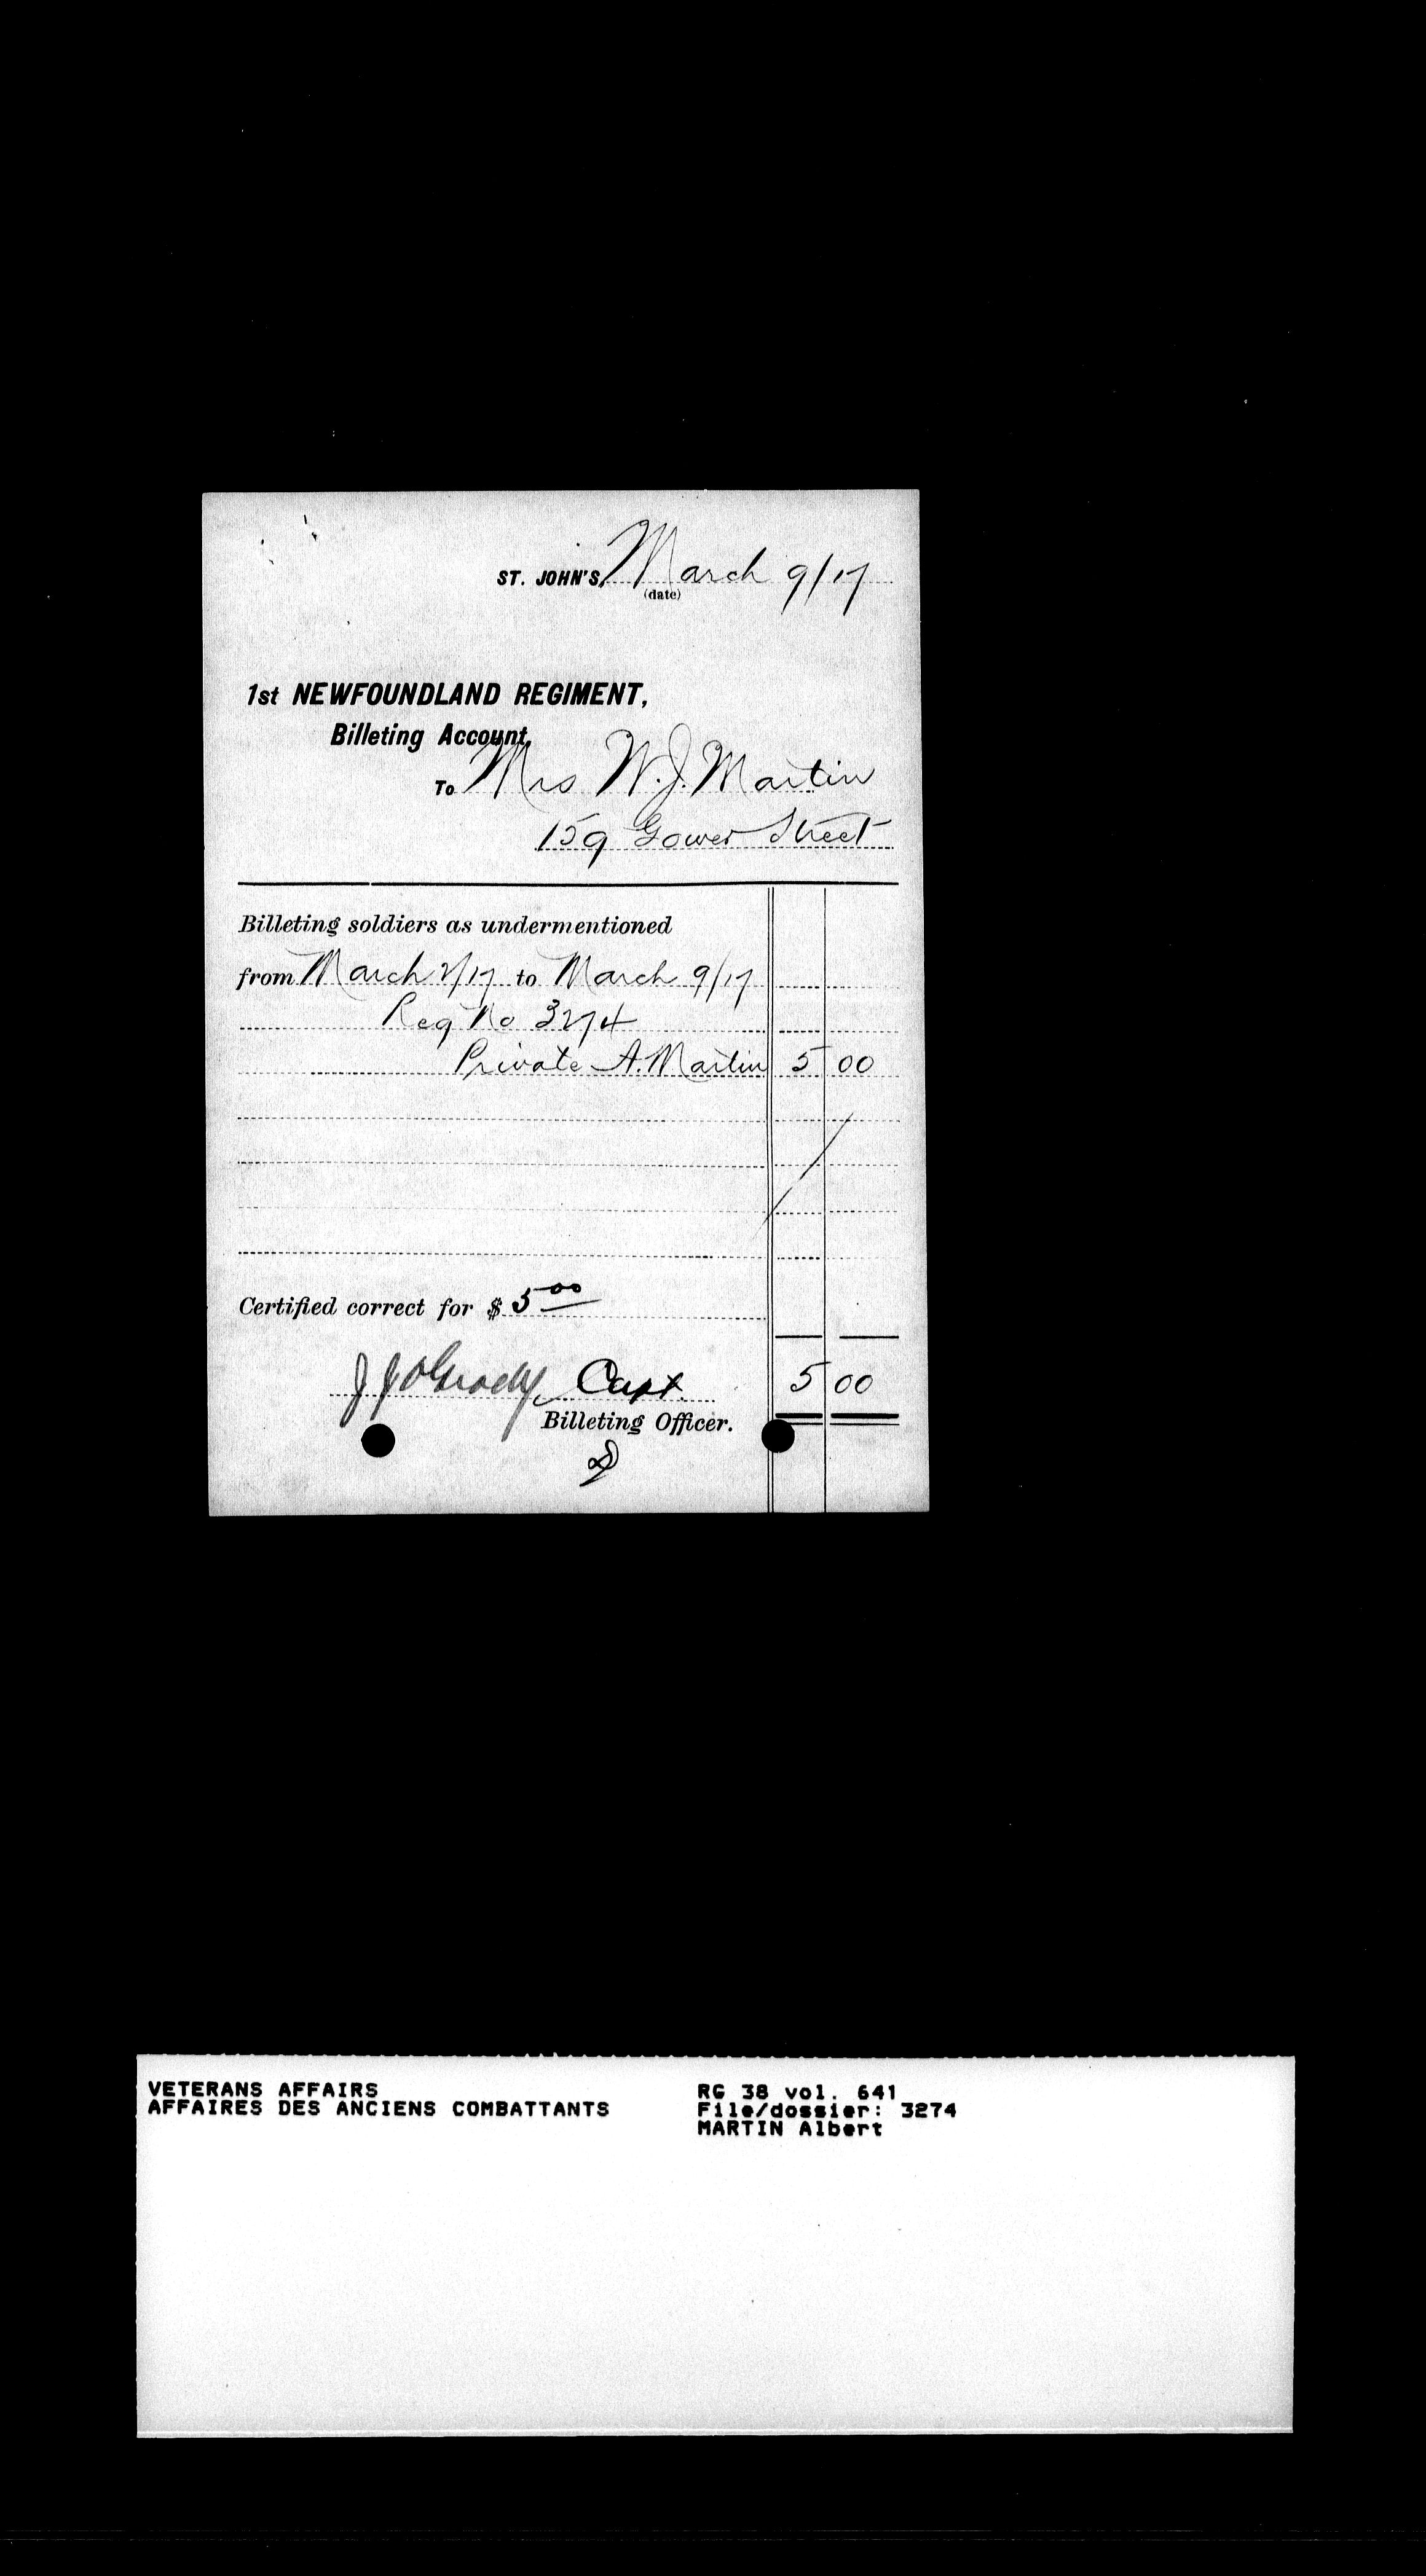 ST. JOHN'S, March 9/17
(date)
1st NEWFOUNDLAND REGIMENT,
Billeting Account,
To Mrs W. J. Martin
159 Gower Street
Billeting soldiers as undermentioned
from March 2/17 to March 9/17
Reg No 3274
Private A. Martin 5 00
Certified correct for $ 5 00
J J O'Grady, Capt. 5 00
Billeting Officer.
VETERANS AFFAIRS
AFFAIRES DES ANCIENS COMBATTANTS
RG 38 vol. 641
File/dossier: 3274
MARTIN Albert